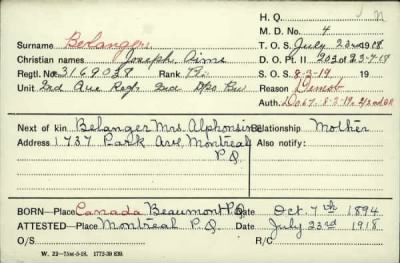 H. Q.
M. D. No. 4
Surname Belanger T. O. S. July 23rd 1918
Christian names Joseph Aime D. O. Pt. II 203 of 23-7-18
Regtl. No. 3169038 Rank Pte. S. O. S. 8-3-19 19
Unit 2nd Que Regt 2nd Depo Bn Reason Demob
Auth. D.O 67. 8-3-19.
Next of kin Belanger Mrs. Alphonsine Relationship Mother
Address 1737 Park Ave, Montreal Also notify:
P.Q.
BORN—Place Canada Beaumont P.Q. Date Oct. 7th 1894
ATTESTED—Place Montreal P.Q. Date July 23rd 1918
O/S R/C